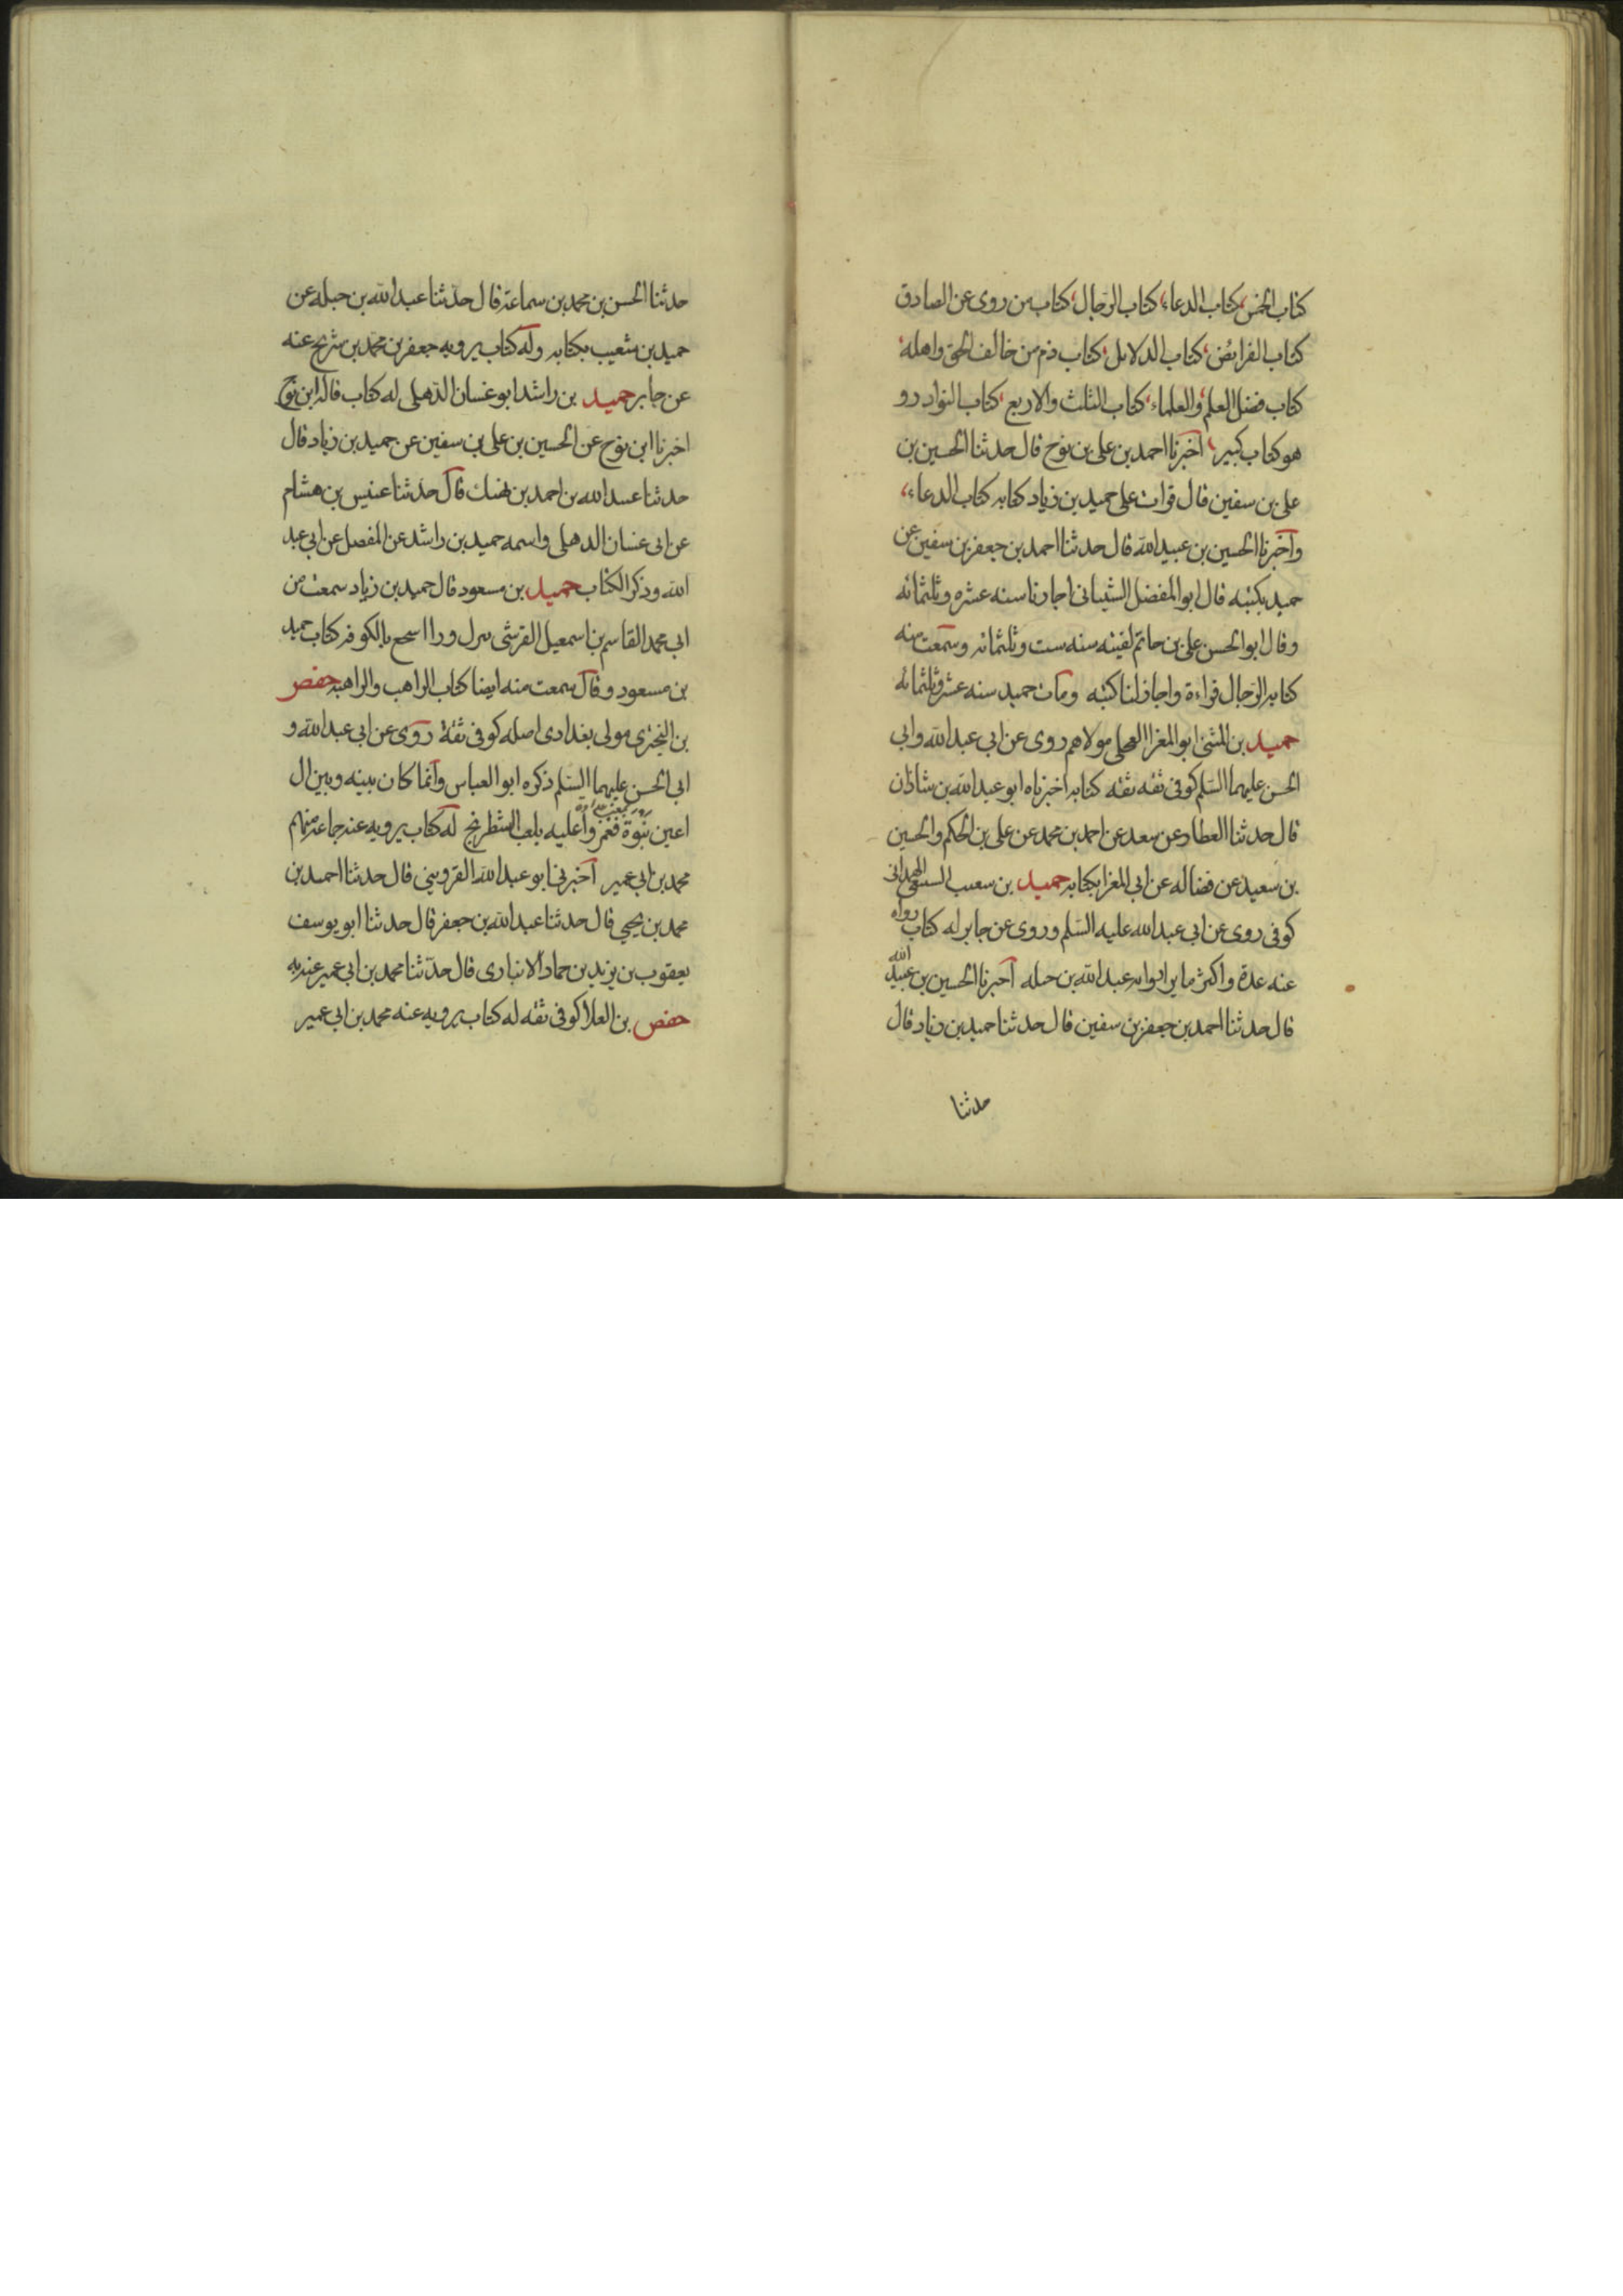 كتاب الخمس، كتاب الدعاء، كتاب الرجال، كتاب من روى عن الصادق
كتاب الفرايض، كتاب الدلايل، كتاب ذم من خالف الحق واهله،
كتاب فضل العلم والعلماء، كتاب الثلث والاربع، كتاب النوادر و
هو كتاب كبير، اخبرنا احمد بن على بن نوح قال حدثنا الحسين بن
على بن سفين قال قرات على حميد بن زياد كتابه كتاب الدعاء،
واخبرنا الحسين بن عبيد الله قال حدثنا احمد بن جعفر بن سفين عن
حميد بكتبه قال ابو المفضل الشيبانى اجازنا سنه عشره وثلثمائه
وقال ابو الحسن على بن حاتم لقيته سنه ست وثلثمائه وسمعت منه
كتابه الرجال قراءة واجاز لنا كتبه ومات حميد سنه عشر وثلثمائه
حميد بن المثنى ابو المغزا العجلى مولاهم روى عن ابى عبد الله وابى
الحسن عليهما السلم كوفى ثقه ثقه كتابه اخبرناه ابو عبد الله بن شاذان
قال حدثنا العطار عن سعد عن احمد بن محمد عن على بن الحكم والحسين
بن سعيد عن فضاله عن ابى المغزا بكتابه حميد بن سعيب السبيعى الهمدانى
كوفى روى عن ابى عبد الله عليه السلم وروى عن جابر له كتاب رواه
عنه عدة واكثر ما يرا روايه عبد الله بن جبله اخبرنا الحسين بن عبيد الله
قال حدثنا احمد بن جعفر بن سفين قال حدثنا حميد بن زياد قال
حدثنا
حدثنا الحسن بن محمد بن سماعة قال حدثنا عبد الله بن جبله عن
حميد بن شعيب بكتابه وله كتاب يرويه جعفر بن محمد بن شريح عنه
عن جابر حميد بن راشد ابو غسان الذهلى له كتاب قاله ابن نوح
اخبرنا ابن نوح عن الحسين بن على بن سفين عن حميد بن زياد قال
حدثنا عبيد الله بن احمد بن نهيك قال حدثنا عنبس بن هشام
عن ابى غسان الذهلى واسمه حميد بن راشد عن المفضل عن ابى عبد
الله وذكر الكتاب حميد بن مسعود قال حميد بن زياد سمعت من
ابى محمد القاسم بن اسمعيل القرشى بالكوفه كتاب حميد
بن مسعود وقال سمعت منه ايضا كتاب الراهب والراهبه حفص
بن البخترى مولى بغدادى اصله كوفى ثقة روى عن ابى عبد الله و
ابى الحسن عليهما السلم ذكره ابو العباس وانما كان بينه وبين ال
اعين نبوة فغمزوا عليه بلعب الشطرنج له كتاب يرويه عنه جماعه منهم
محمد بن ابى عمير اخبرنى ابو عبد الله القزوينى قال حدثنا احمد بن
محمد بن يحيى قال حدثنا عبد الله بن جعفر قال حدثنا ابو يوسف
يعقوب بن يزيد بن حماد الانبارى قال حدثنا محمد بن ابى عمير عنه به
حفص بن العلا كوفى ثقه له كتاب يرويه عنه محمد بن ابى عمير